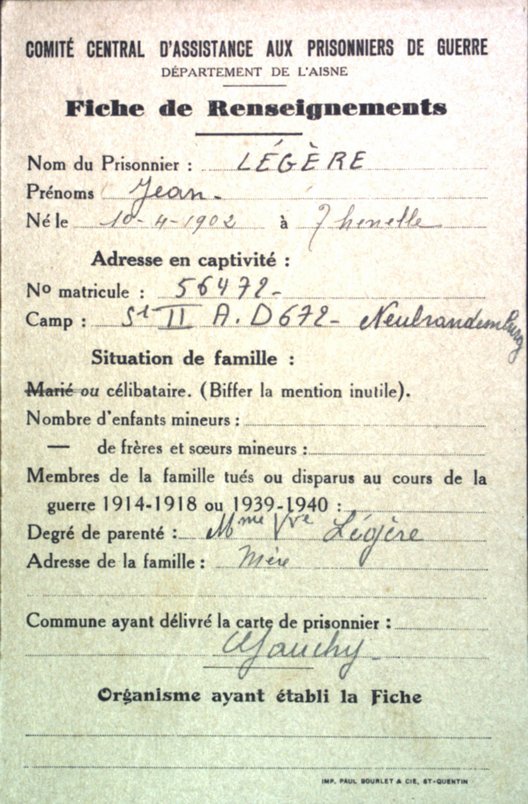 COMITÉ CENTRAL D'ASSISTANCE AUX PRISONNIERS DE GUERRE
DÉPARTEMENT DE L'AISNE
Fiche de Renseignements
Nom du Prisonnier : LÉGÈRE
Prénoms Jean.
Né le 10-4-1902 à Thenelle
Adresse en captivité :
No matricule : 56472-
Camp : St II A. D 672- Neubrandemburg
Situation de famille :
Marié ou célibataire. (Biffer la mention inutile).
Nombre d'enfants mineurs :
— de frères et sœurs mineurs :
Membres de la famille tués ou disparus au cours de la
guerre 1914-1918 ou 1939-1940 :
Degré de parenté : Mme Vve Légère
Adresse de la famille : Mère
Commune ayant délivré la carte de prisonnier :
Gauchy
Organisme ayant établi la Fiche
IMP. PAUL BOURLET & CIE, ST-QUENTIN